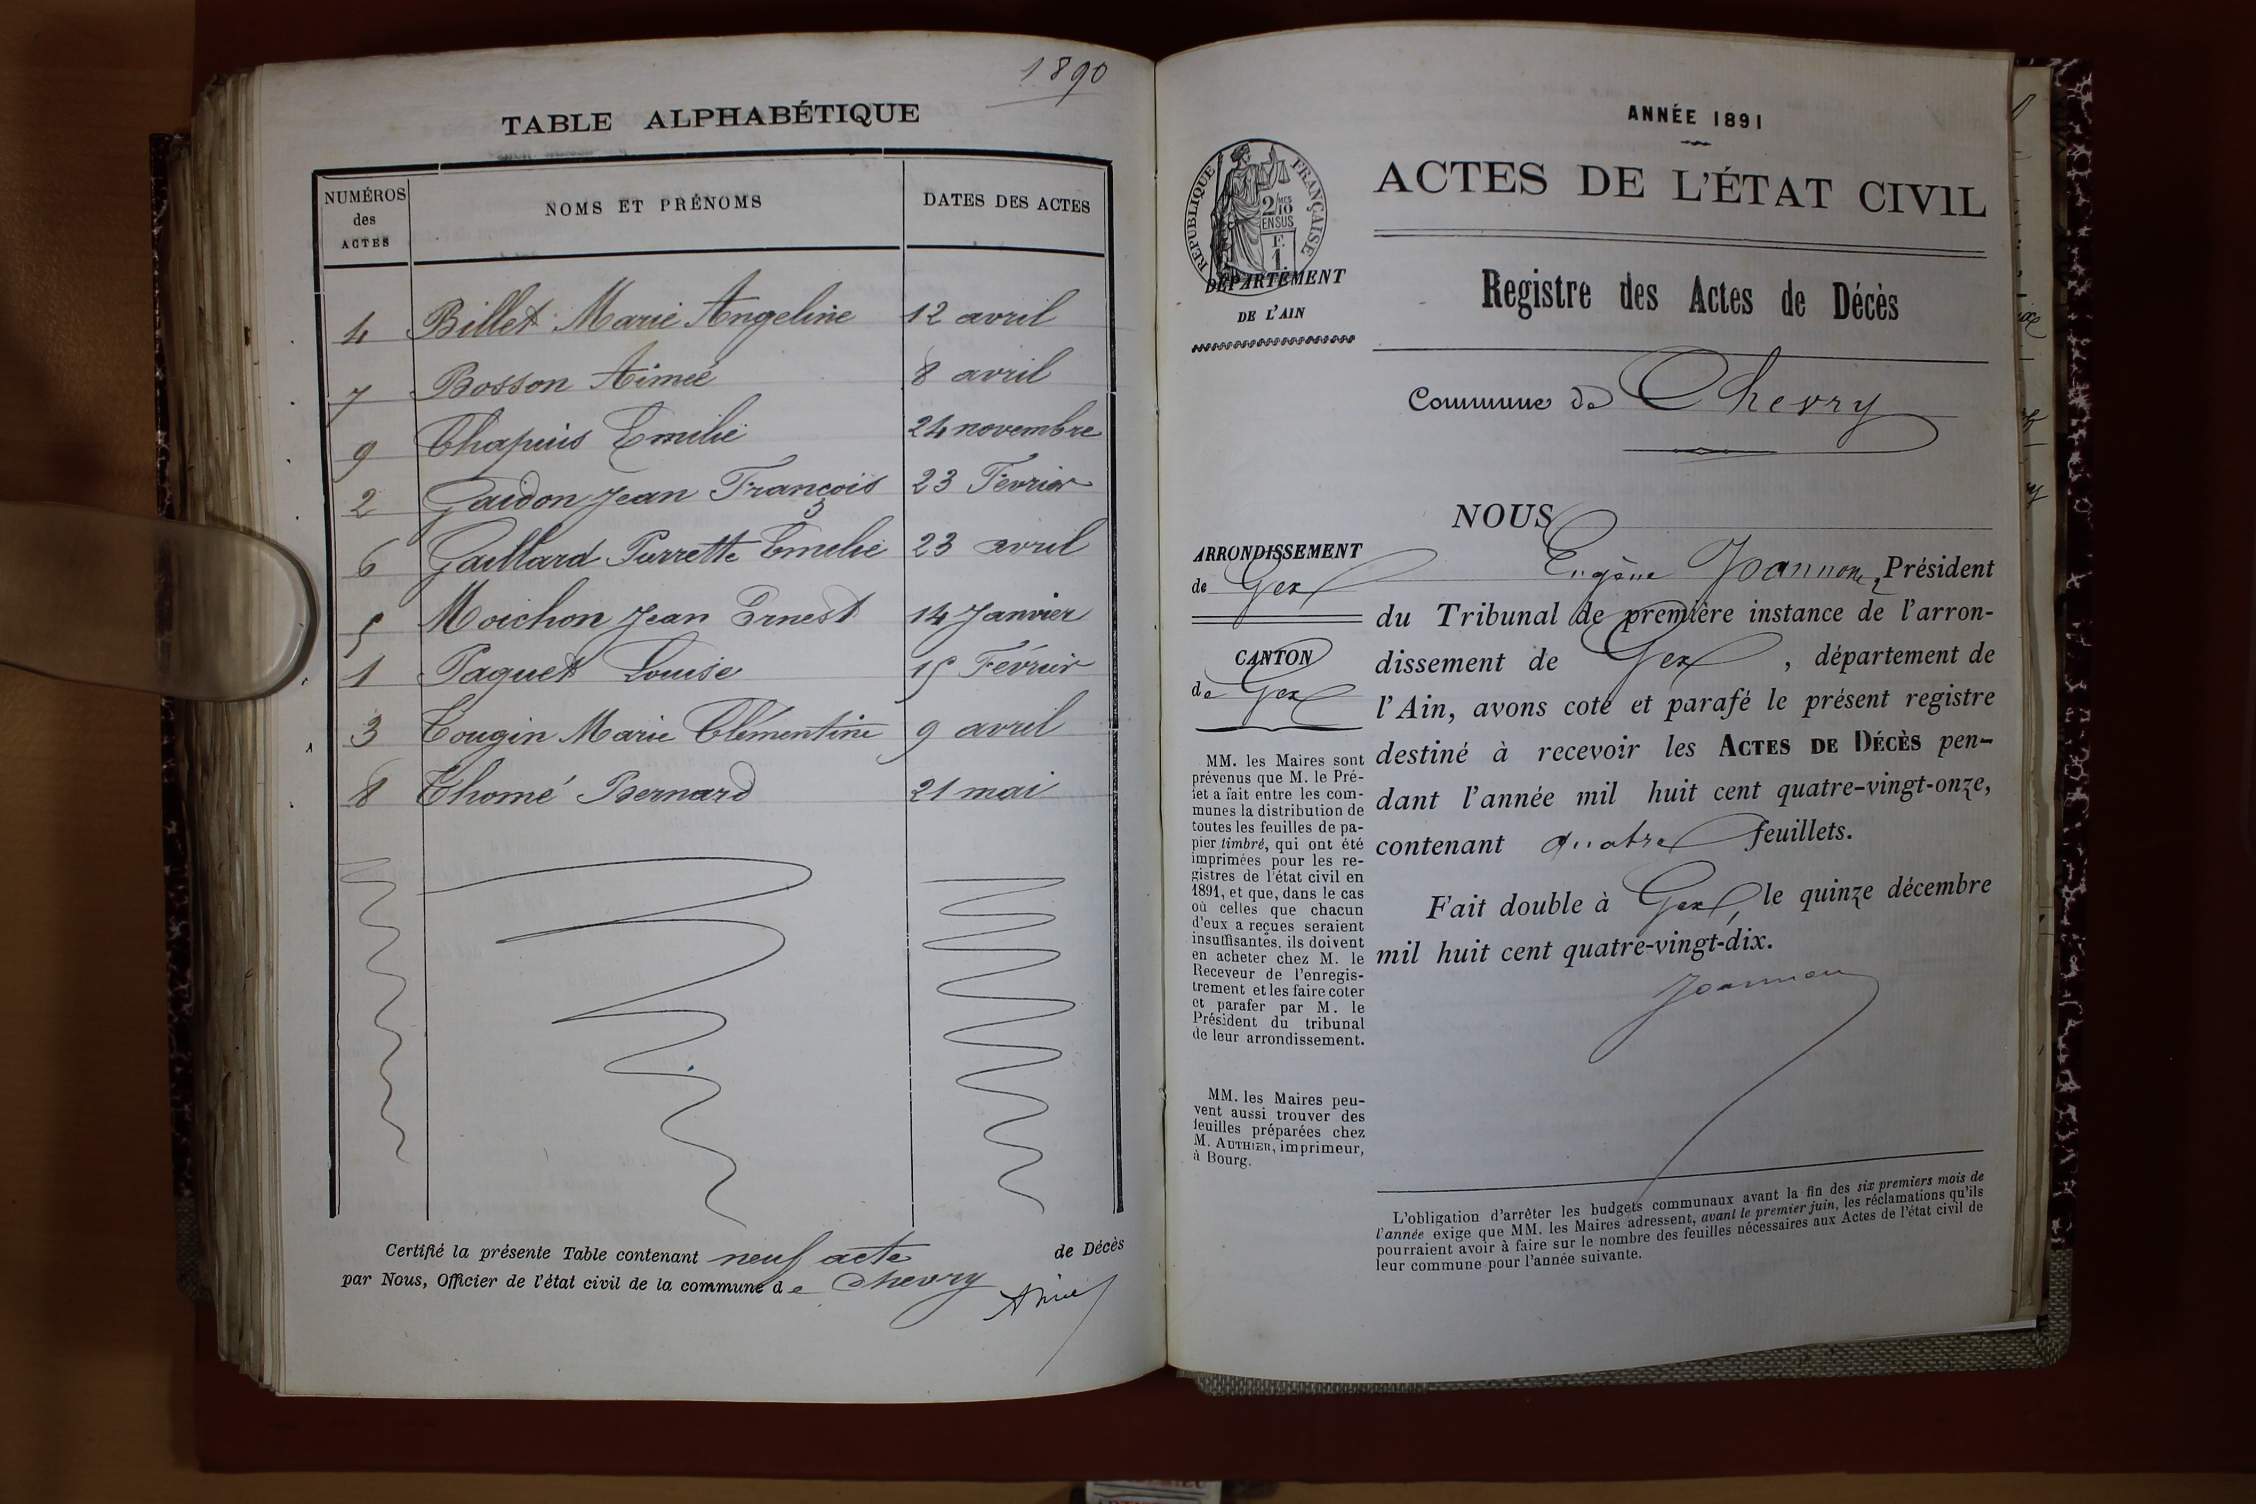 1890
TABLE ALPHABÉTIQUE
NUMÉROS des ACTES NOMS ET PRÉNOMS DATES DES ACTES
4 Billet Marie Angeline 12 avril
7 Bosson Aimée 8 avril
9 Chapuis Emilie 24 novembre
2 Gaidon Jean François 23 Février
6 Gaillard Perrette Emelie 23 avril
5 Moichon Jean Ernest 14 Janvier
1 Paquet Louise 15 Février
3 Tougin Marie Clémentine 9 avril
8 Thomé Bernard 21 mai
Certifié la présente Table contenant neuf acte de Décès
par Nous, Officier de l'état civil de la commune de Chevry
ANNÉE 1891
ACTES DE L'ÉTAT CIVIL
RÉPUBLIQUE FRANÇAISE
2/10 MES
EN SUS
F.
1
DÉPARTEMENT
DE L'AIN
Registre des Actes de Décès
Commune de Chevry
ARRONDISSEMENT
de Gex
CANTON
de Gex
MM. les Maires sont
prévenus que M. le Pré-
fet a fait entre les com-
munes la distribution de
toutes les feuilles de pa-
pier timbré, qui ont été
imprimées pour les re-
gistres de l'état civil en
1891, et que, dans le cas
où celles que chacun
d'eux a reçues seraient
insuffisantes, ils doivent
en acheter chez M. le
Receveur de l'enregis-
trement et les faire coter
et parafer par M. le
Président du tribunal
de leur arrondissement.
MM. les Maires peu-
vent aussi trouver des
feuilles préparées chez
M. AUTHIER, imprimeur,
à Bourg.
NOUS
Eugène Joannon, Président
du Tribunal de première instance de l'arron-
dissement de Gex, département de
l'Ain, avons coté et parafé le présent registre
destiné à recevoir les ACTES DE DÉCÈS pen-
dant l'année mil huit cent quatre-vingt-onze,
contenant quatre feuillets.
Fait double à Gex, le quinze décembre
mil huit cent quatre-vingt-dix.
Joannon
L'obligation d'arrêter les budgets communaux avant la fin des six premiers mois de
l'année exige que MM. les Maires adressent, avant le premier juin, les réclamations qu'ils
pourraient avoir à faire sur le nombre des feuilles nécessaires aux Actes de l'état civil de
leur commune pour l'année suivante.